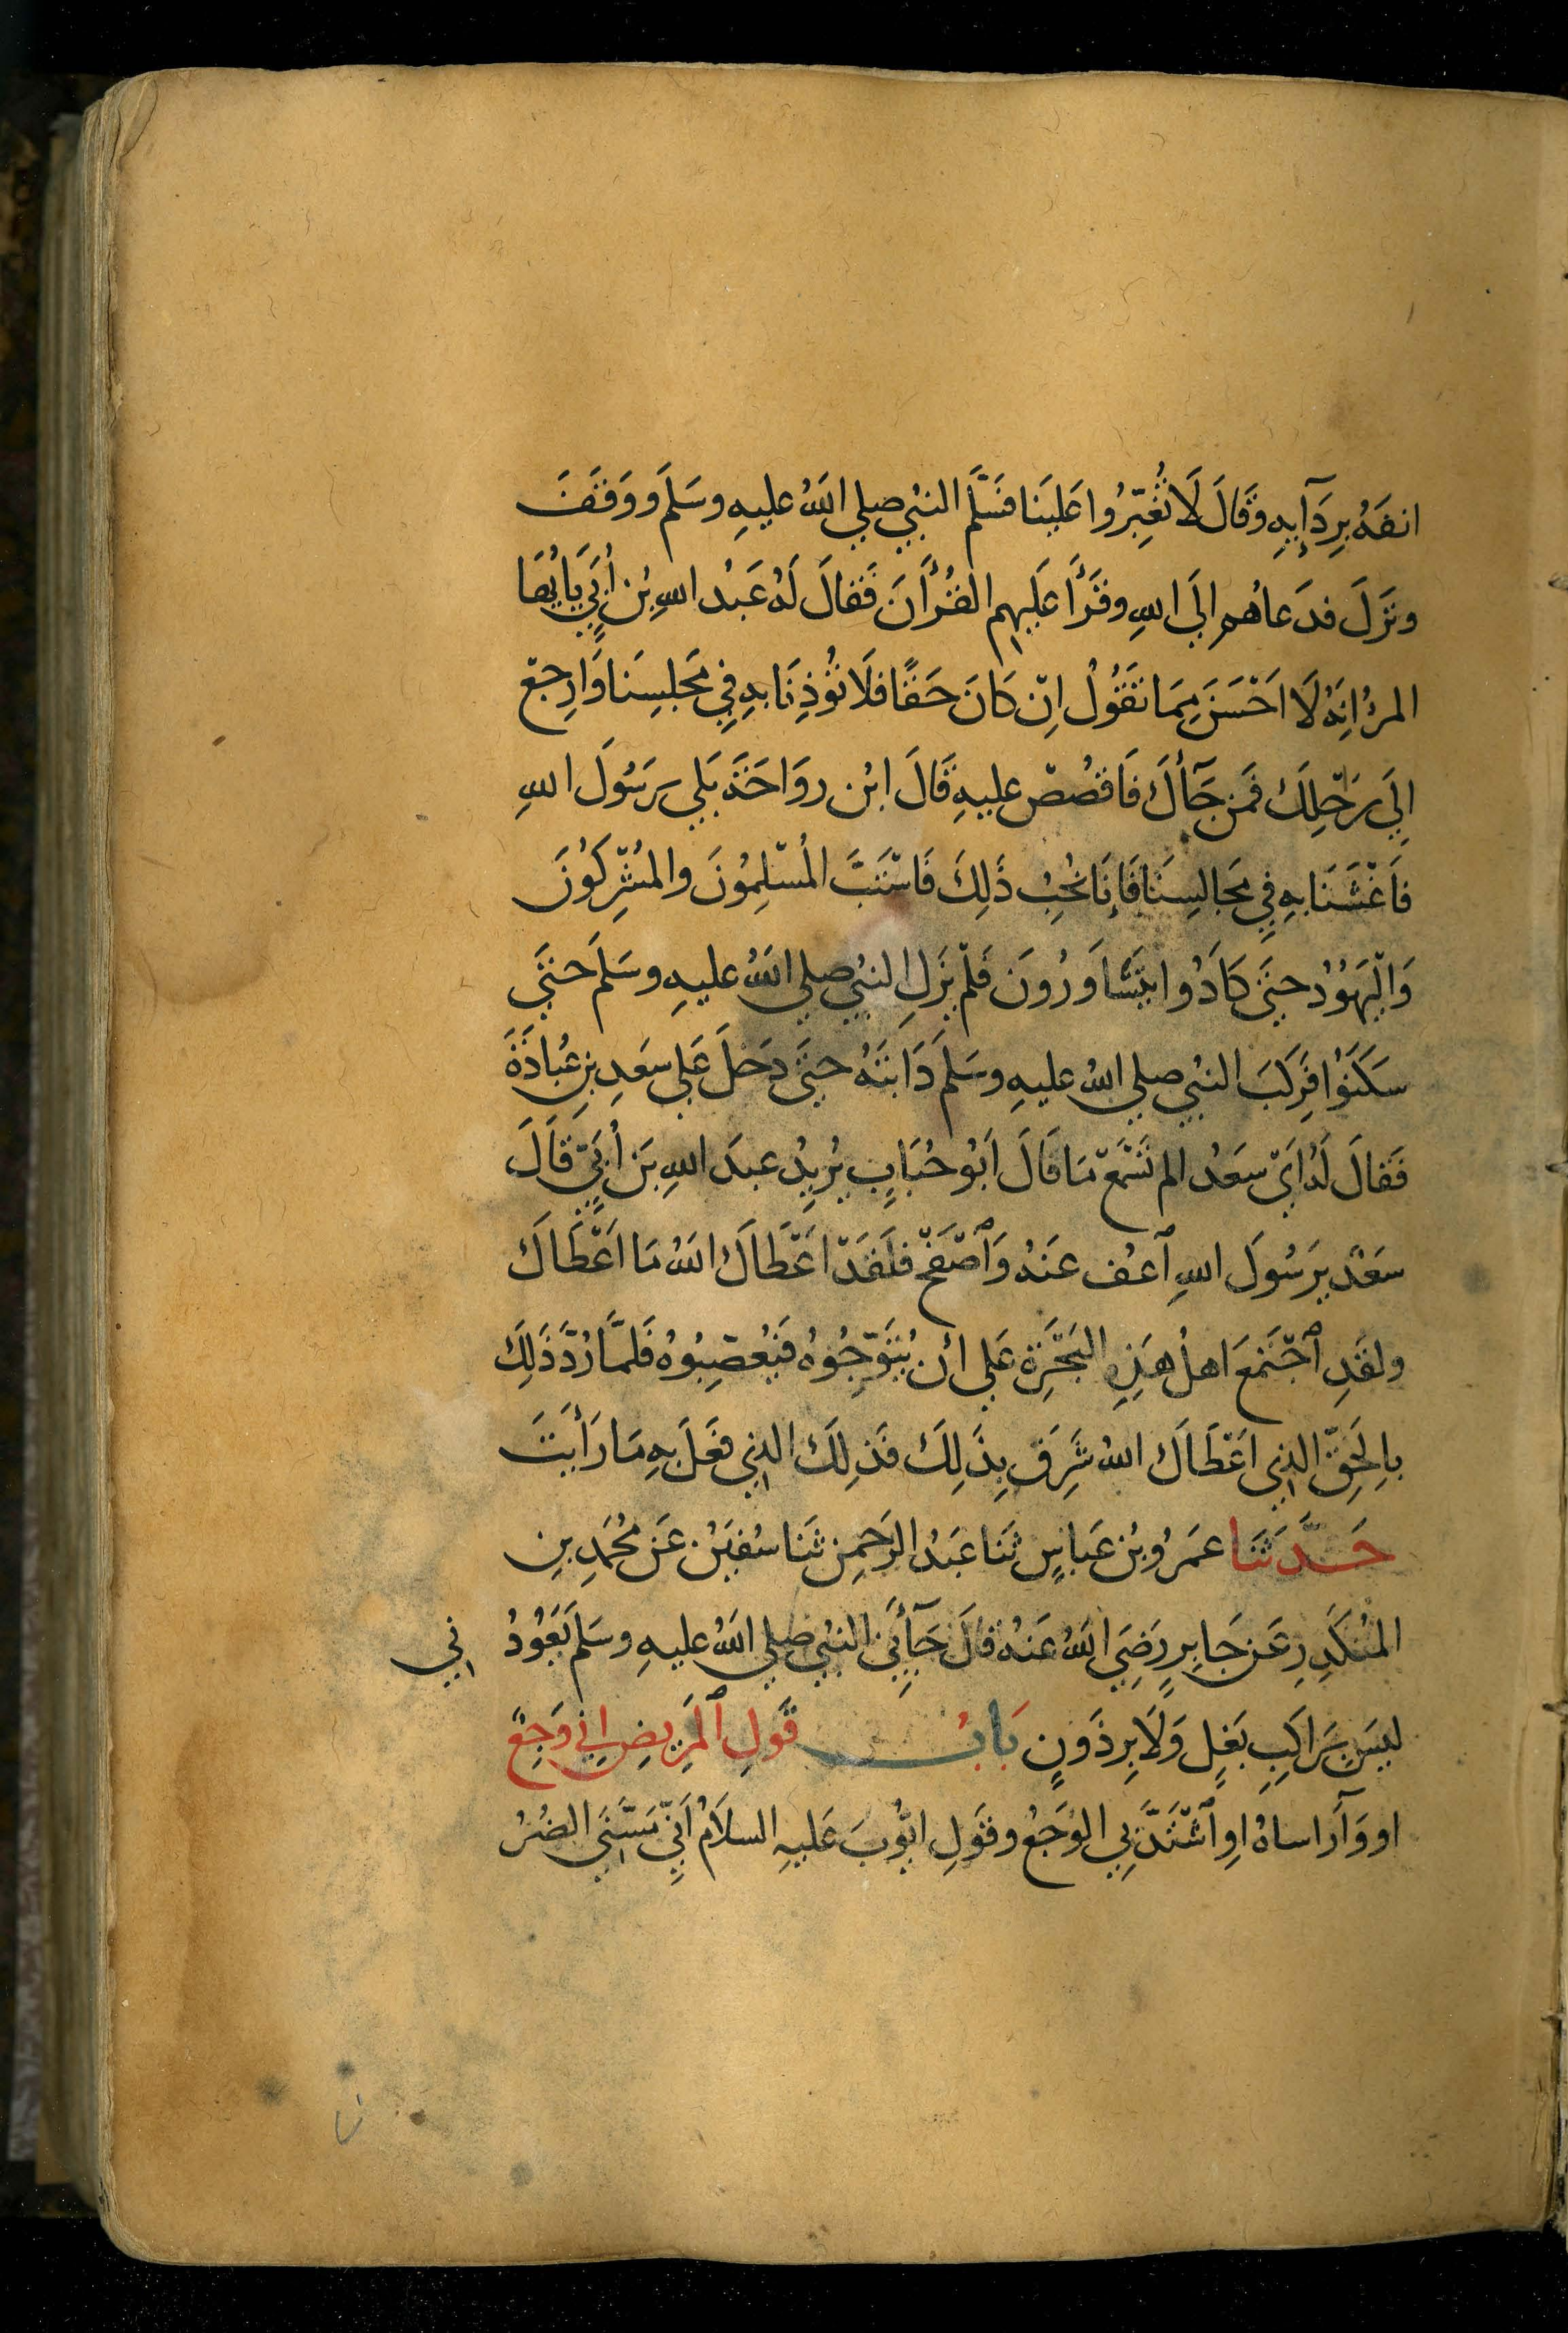 انفَهُ بِرِدَآيِهِ وَقَالَ لَا تُغَبِّرُوا عَلَيْنَا فسَلَّمَ النبيُ صلي اللهُ عليهِ وسَلمَ ووَقفَ
ونَزَلَ فدَعاهُم الَي اللهِ وقَرَأَ عَلَيهِم القُرْأَنَ فَقالَ لَهُ عَبْد اللهِ بْن أُبَيٍ يَا ايُهَا
المرْءُ انِّهُ لَا اَحْسَنَ مِمَا تَقُولُ اِنْ كَانَ حَقًا فلَا تُوْذِنَا بِهِ فِي مَجْلِسِنَا وَارجِعْ
اِلَي رَحْلِكَ فَمَن جَآأَكَ فَاقصُصْ عليهِ قَالَ ابْن روَاحَةَ بَلي يرَسُولَ اللهِ
فاَغْشَنَا بهِ فِي مَجَالسِنَا فَاِنَا نُحِبُ ذَلِكَ فَاسْتَبَّ الْمُسْلِمُونَ والمُشْرِكُونَ
وَالْيَهُوُدُ حتيَ كَادُوا يتَسَاوَرُونَ فَلَمْ يَزَلِ النبيُ صلي اللهُ عليهِ وسَلمَ حتيَ
سَكَنُوا فرَكبَ النبيُ صلي اللهُ عليهِ وسَلمَ دَابتَهُ حتيَ دَخلَ عَلي سَعَدِ بنِ عُبادَةَ
فَقالَ لَهُ اَيْ سعَدُ الم تَسْمَعْ مَا قَالَ اَبُو حُبَابٍ يُرِيدُ عبدَ اللهِ بنَ أُبَيٍّ قَالَ
سَعَدٌ يرَسُولَ اللهِ ٱعفُ عَنهُ وَٱصْفَحْ فلَقَدْ اَعْطَاكَ اللهُ مَا اَعْطَاكَ
ولقَدِ ٱجْتَمَعَ اهلُ هَذِهِ البَحْرَةِ عَلي اَن يُتَوّجُوهُ فَيُعصِبُوهُ فَلمَّا رُدَّ ذَلِكَ
باِلحَقِّ الذِي اَعْطَاكَ اللهُ شَرِقَ بِذَلِكَ فَذلِكَ الذِي فعَلَ بهِ مَا رَأَيتَ
حَدَّثَنَا عمَرُو بْن عَباسٍ ثنَا عَبدُ الرَحَمِن ثَنَا سُفيَن عَن مُحُمَدِ بنِ
المُنكَدِرِ عَن جَابِرٍ رَضِيَ اللهُ عَنهُ قالَ جَآأَنِي النبيُ صلي اللهُ عليهِ وسَلمَ يَعُودُني
ليسَ بِرَاكَبِ بَغلٍ وَلَا بِرذَونٍ بَابُ قَولِ ٱلمَرِيضِ اِني وَجِعٌ
او وَآرَاساهُ اَوِ ٱشْتَدَّ بِي الوَجَعُ وقَولِ ايُّوبَ عَليهِ السلَامُ اَنِّي مَسَّنيَ الضُرُ